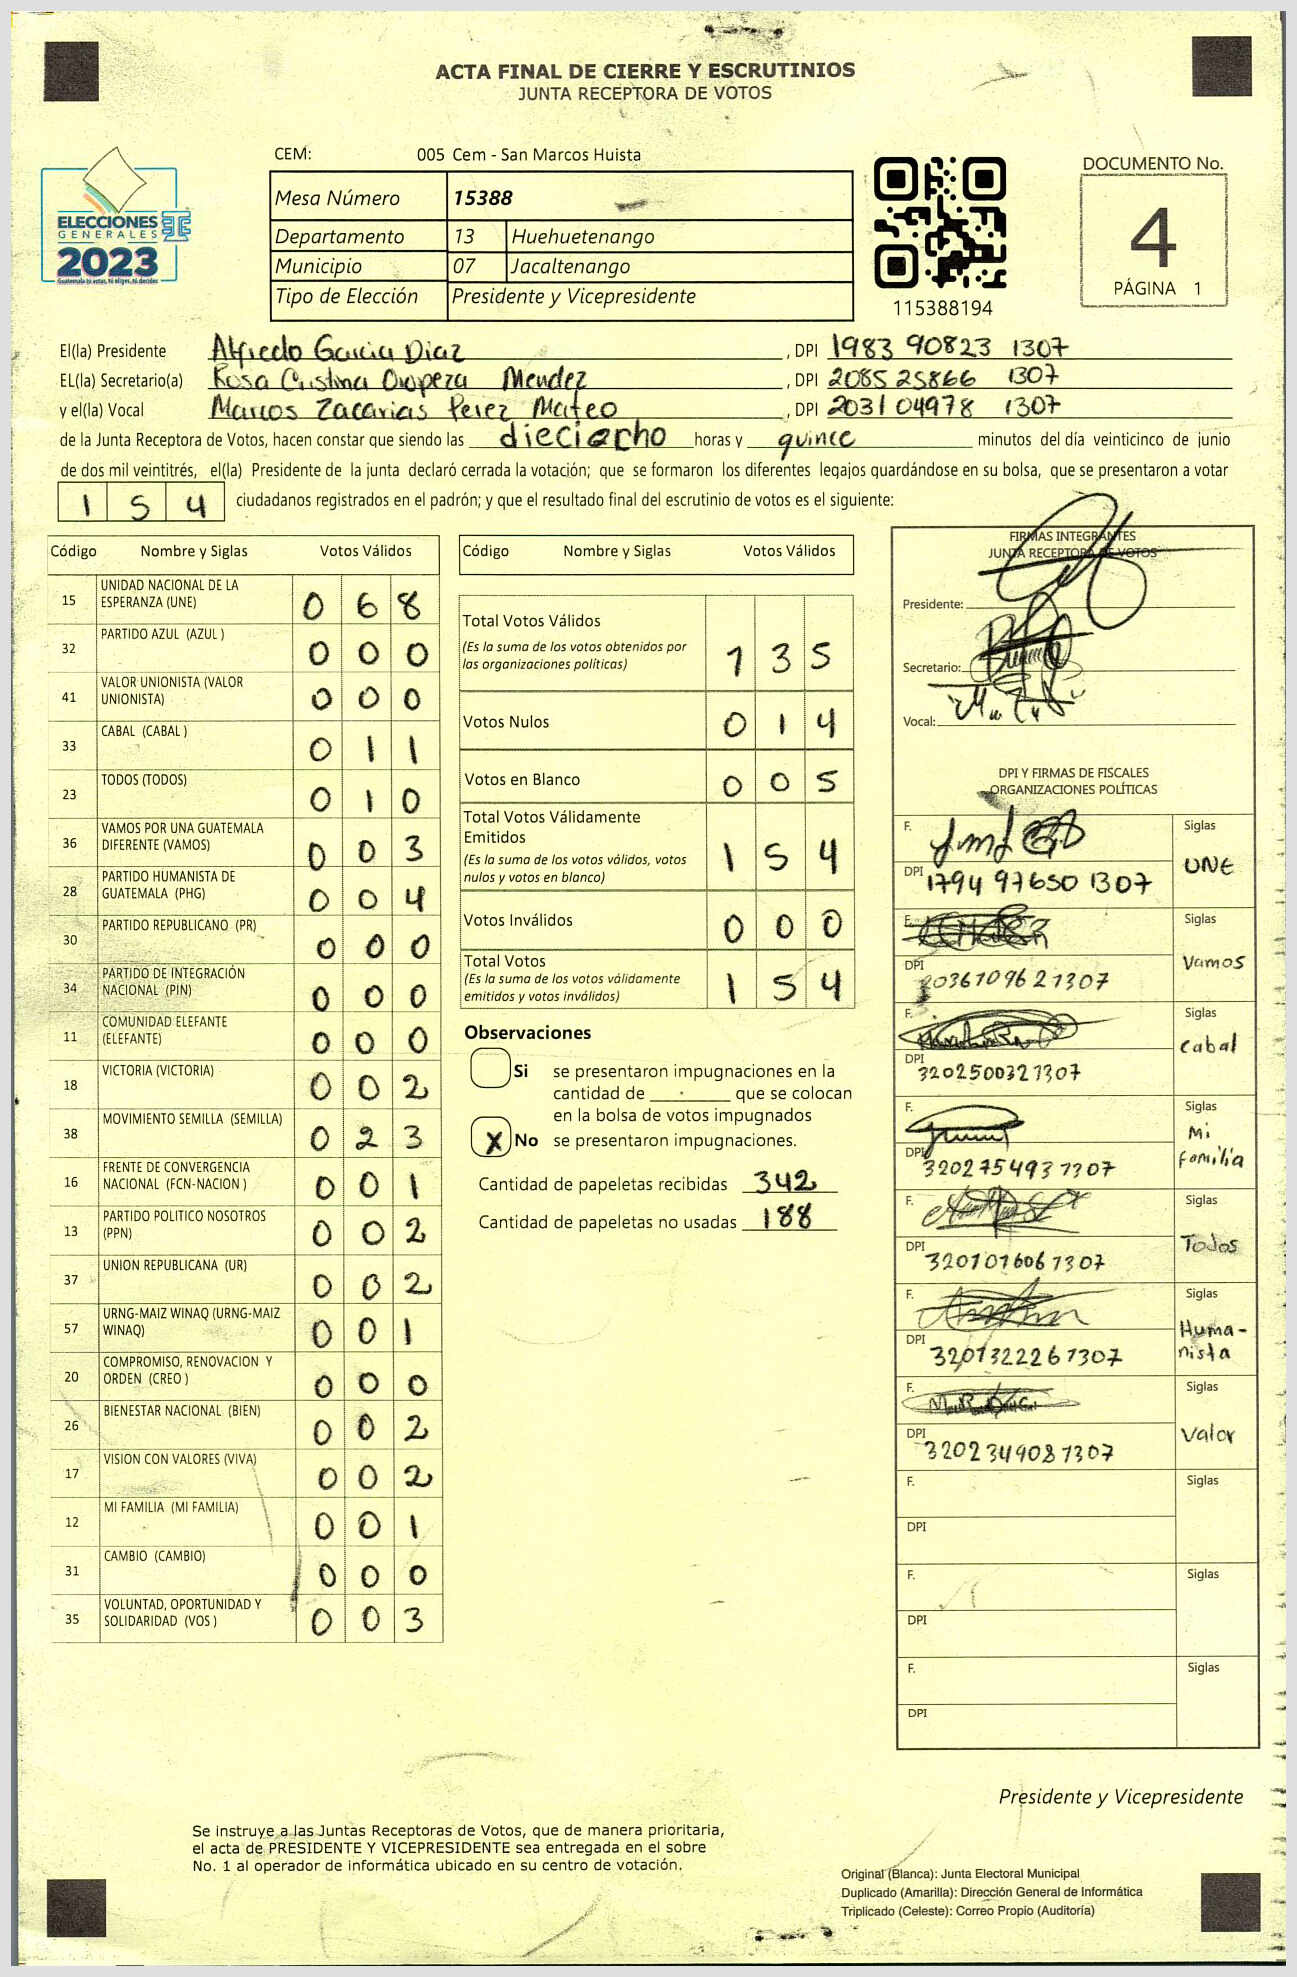 ACTA FINAL DE CIERRE Y ESCRUTINIOS
JUNTA RECEPTORA DE VOTOS
ELECCIONES
GENERALES
2023
Guatemala tú votas, tú eliges, tú decides
CEM: 005 Cem - San Marcos Huista
Mesa Número 15388
Departamento 13 Huehuetenango
Municipio 07 Jacaltenango
Tipo de Elección Presidente y Vicepresidente
115388194
DOCUMENTO No.
4
PÁGINA 1
El(la) Presidente Alfredo Garcia Diaz, DPI 1983 90823 1307
EL(la) Secretario(a) Rosa Cristina Oropeza Mendez, DPI 2085 25866 1307
y el(la) Vocal Marcos Zacarias Perez Mateo, DPI 2031 04978 1307
de la Junta Receptora de Votos, hacen constar que siendo las dieciocho horas y quince minutos del día veinticinco de junio
de dos mil veintitrés, el(la) Presidente de la junta declaró cerrada la votación; que se formaron los diferentes legajos quardándose en su bolsa, que se presentaron a votar
154 ciudadanos registrados en el padrón; y que el resultado final del escrutinio de votos es el siguiente:
Código Nombre y Siglas Votos Válidos
15 UNIDAD NACIONAL DE LA
ESPERANZA (UNE) 0 6 8
32 PARTIDO AZUL (AZUL ) 0 0 0
41 VALOR UNIONISTA (VALOR
UNIONISTA) 0 0 0
33 CABAL (CABAL ) 0 1 1
23 TODOS (TODOS) 0 1 0
36 VAMOS POR UNA GUATEMALA
DIFERENTE (VAMOS) 0 0 3
28 PARTIDO HUMANISTA DE
GUATEMALA (PHG) 0 0 4
30 PARTIDO REPUBLICANO (PR) 0 0 0
34 PARTIDO DE INTEGRACIÓN
NACIONAL (PIN) 0 0 0
11 COMUNIDAD ELEFANTE
(ELEFANTE) 0 0 0
18 VICTORIA (VICTORIA) 0 0 2
38 MOVIMIENTO SEMILLA (SEMILLA) 0 2 3
16 FRENTE DE CONVERGENCIA
NACIONAL (FCN-NACION ) 0 0 1
13 PARTIDO POLITICO NOSOTROS
(PPN) 0 0 2
37 UNION REPUBLICANA (UR) 0 0 2
57 URNG-MAIZ WINAQ (URNG-MAIZ
WINAQ) 0 0 1
20 COMPROMISO, RENOVACION Y
ORDEN (CREO ) 0 0 0
26 BIENESTAR NACIONAL (BIEN) 0 0 2
17 VISION CON VALORES (VIVA) 0 0 2
12 MI FAMILIA (MI FAMILIA) 0 0 1
31 CAMBIO (CAMBIO) 0 0 0
35 VOLUNTAD, OPORTUNIDAD Y
SOLIDARIDAD (VOS ) 0 0 3
Código Nombre y Siglas Votos Válidos
Total Votos Válidos
(Es la suma de los votos obtenidos por
las organizaciones políticas) 1 3 5
Votos Nulos 0 1 4
Votos en Blanco 0 0 5
Total Votos Válidamente
Emitidos
(Es la suma de los votos válidos, votos
nulos y votos en blanco) 1 5 4
Votos Inválidos 0 0 0
Total Votos
(Es la suma de los votos válidamente
emitidos y votos inválidos) 1 5 4
Observaciones
Si se presentaron impugnaciones en la
cantidad de ________ que se colocan
en la bolsa de votos impugnados
X No se presentaron impugnaciones.
Cantidad de papeletas recibidas 342
Cantidad de papeletas no usadas 188
FIRMAS INTEGRANTES
JUNTA RECEPTORA DE VOTOS
Presidente:
Secretario:
Vocal:
DPI Y FIRMAS DE FISCALES
ORGANIZACIONES POLÍTICAS
F. Siglas
UNE
DPI 1794 97650 1307
F. Siglas
Vamos
DPI 203610962 1307
F. Siglas
Cabal
DPI 320250032 1307
F. Siglas
Mi
familia
DPI 320275493 1307
F. Siglas
Todos
DPI 320101606 1307
F. Siglas
Huma-
nista
DPI 320132226 1307
F. Siglas
Valor
DPI 320234908 1307
F. Siglas
DPI
F. Siglas
DPI
F. Siglas
DPI
Presidente y Vicepresidente
Se instruye a las Juntas Receptoras de Votos, que de manera prioritaria,
el acta de PRESIDENTE Y VICEPRESIDENTE sea entregada en el sobre
No. 1 al operador de informática ubicado en su centro de votación.
Original (Blanca): Junta Electoral Municipal
Duplicado (Amarilla): Dirección General de Informática
Triplicado (Celeste): Correo Propio (Auditoría)